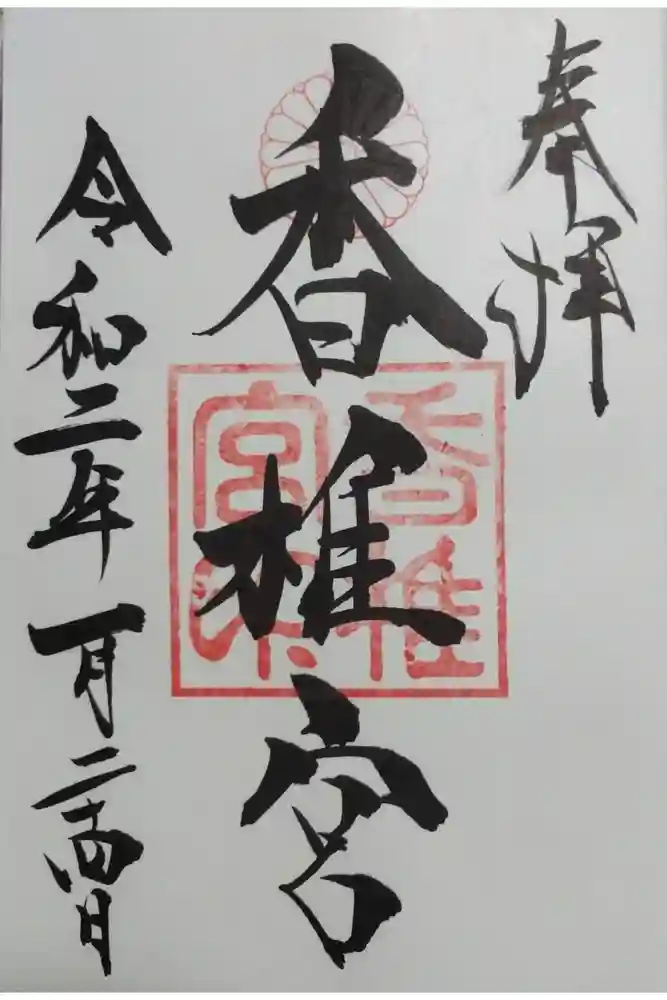 奉拝
香椎宮
香椎宮印
令和二年一月二十四日